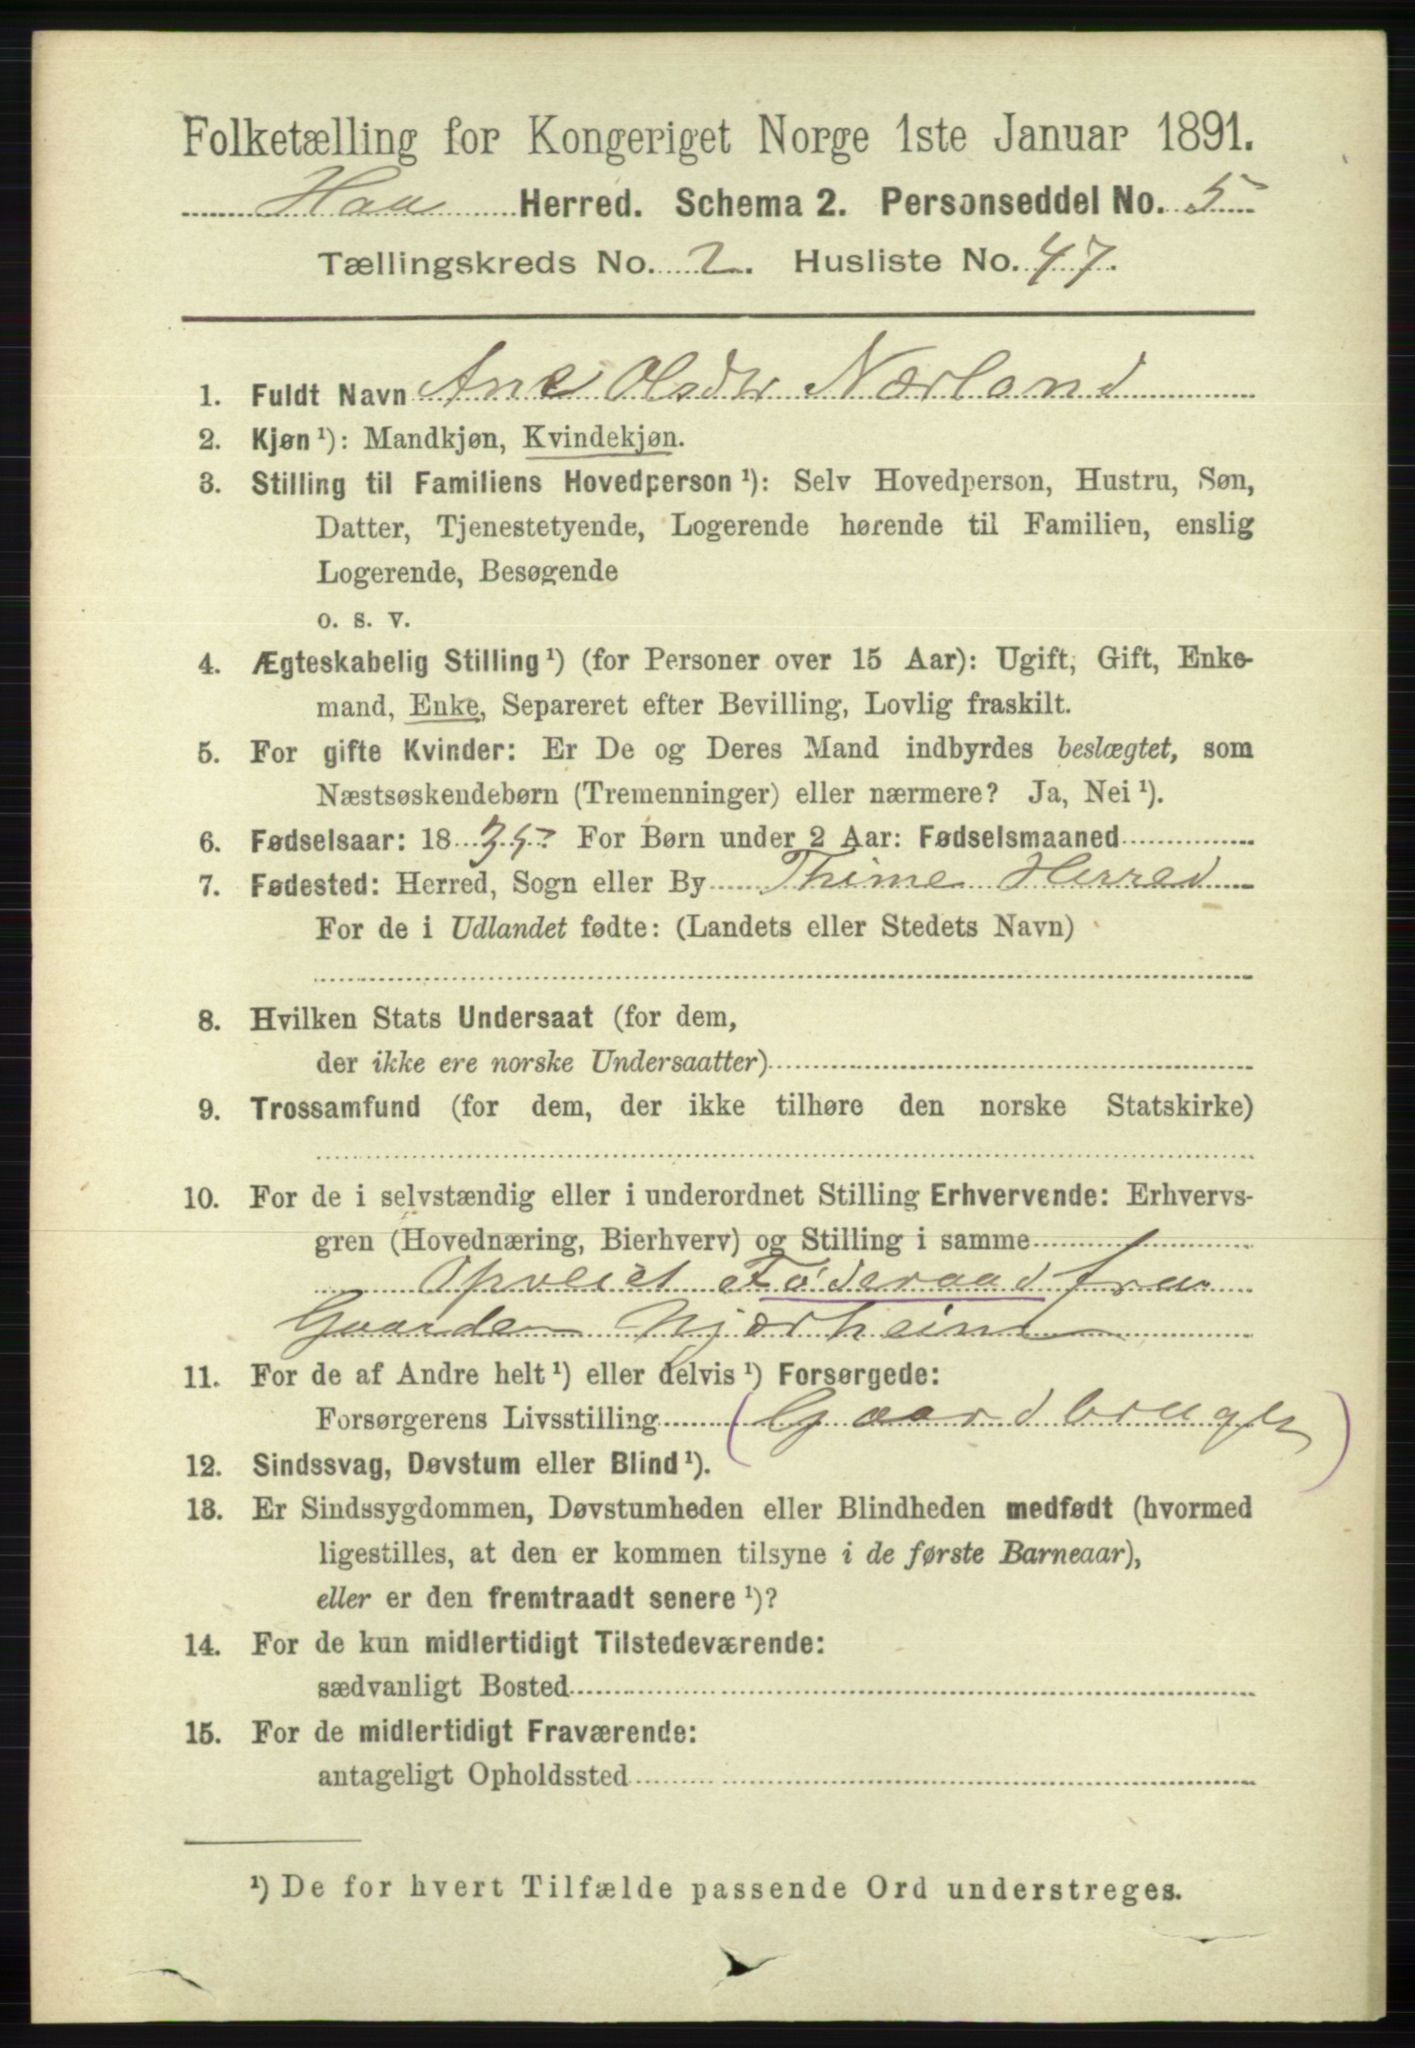 Folketælling for Kongeriget Norge 1ste Januar 1891.
Haa Herred. Schema 2. Personseddel No. 5
Tællingskreds No. 2. Husliste No. 47.
1. Fuldt Navn Ane Olsdtr Nærland
2. Kjøn ¹): Mandkjøn, Kvindekjøn.
3. Stilling til Familiens Hovedperson ¹): Selv Hovedperson, Hustru, Søn,
Datter, Tjenestetyende, Logerende hørende til Familien, enslig
Logerende, Besøgende
o. s. v.
4. Ægteskabelig Stilling ¹) (for Personer over 15 Aar): Ugift, Gift, Enke-
mand, Enke, Separeret efter Bevilling, Lovlig fraskilt.
5. For gifte Kvinder: Er De og Deres Mand indbyrdes beslægtet, som
Næstsøskendebørn (Tremenninger) eller nærmere? Ja, Nei ¹).
6. Fødselsaar: 1835 For Børn under 2 Aar: Fødselsmaaned
7. Fødested: Herred, Sogn eller By Thime Herred
For de i Udlandet fødte: (Landets eller Stedets Navn)
8. Hvilken Stats Undersaat (for dem,
der ikke ere norske Undersaatter)
9. Trossamfund (for dem, der ikke tilhøre den norske Statskirke)
10. For de i selvstændig eller i underordnet Stilling Erhvervende: Erhvervs-
gren (Hovednæring, Bierhverv) og Stilling i samme
Føderaad fra
Gaarden Njærheim
11. For de af Andre helt ¹) eller delvis ¹) Forsørgede:
Forsørgerens Livsstilling (Gaardbruger)
12. Sindssvag, Døvstum eller Blind ¹).
13. Er Sindssygdommen, Døvstumheden eller Blindheden medfødt (hvormed
ligestilles, at den er kommen tilsyne i de første Barneaar),
eller er den fremtraadt senere ¹)?
14. For de kun midlertidigt Tilstedeværende:
sædvanligt Bosted
15. For de midlertidigt Fraværende:
antageligt Opholdssted
¹) De for hvert Tilfælde passende Ord understreges.